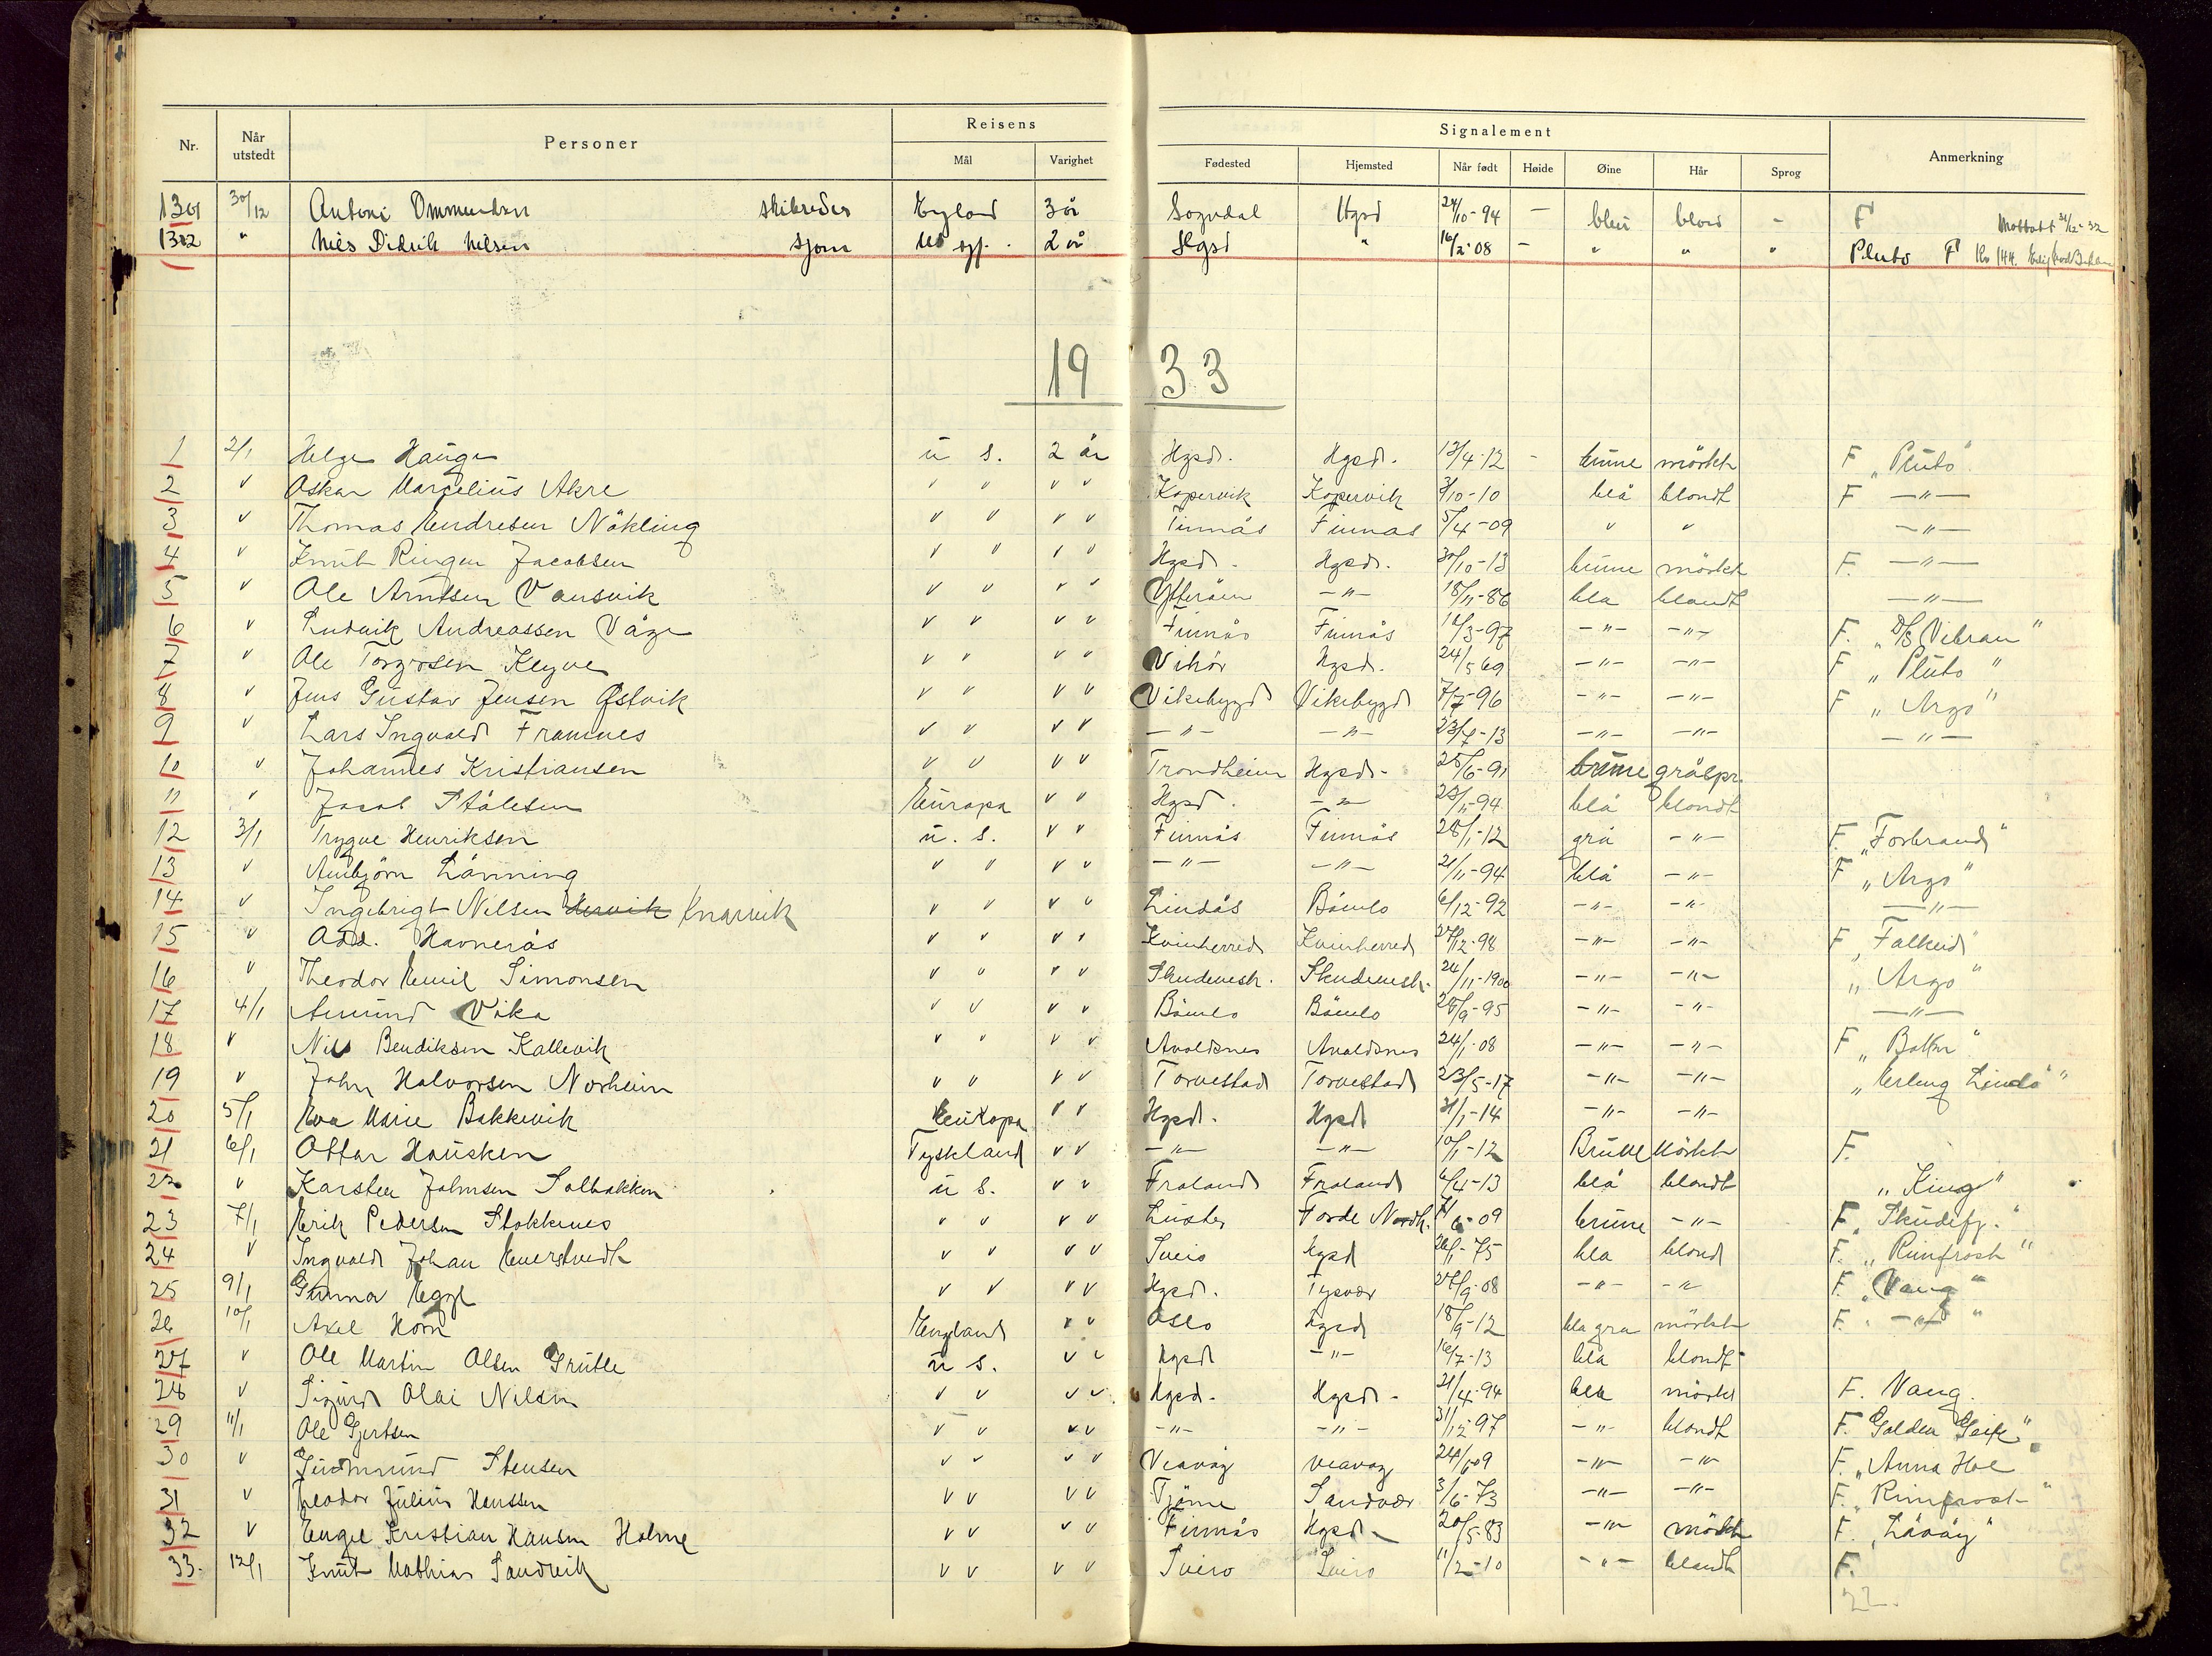 Nr. Når utstedt Personer Reisens Mål Varighet Signalement Fødested Hjemsted Når født Høide Øine Hår Sprog Anmerkning
1301 30/12 Antoni Ommundsen skibreder England 3 år Sogndal Hgsd 24/10-94 - blå blond - F Mottatt 31/12-32
1302 " Nils Didrik Nilsen sjøm 2 år Hgsd " 16/2-08 - " " " Pluto F
19 33
1 2/1 Helge Hauge u s. 2 år Hgsd. Hgsd. 13/4-12 - brune mörkt F „Pluto"
2 v Oskar Marcelius Akre v v v v Kopervik Kopervik 3/10-10 blå blondt F -"-
3 v Thomas Endresen Nökling v v v v Finnås Finnas 5/4-09 v v -"-
4 v Knut Ringen Jacobsen v v v v Hgsd. Hgsd. 30/10-13 brune mörkt F. -"-
5 v Ole Arntsen Vansvik v v v v Ytteröen -"- 18/11-86 bla blondt -"-
6 v Ludvik Andreassen Våge v v v v Finnås Finnås 12/3-97 -"- -"- F. „D/S Vibran"
7 v Ole Torgersen Kleyve v v v v Vikör Hgsd. 24/5 69 -"- -"- F „Pluto"
8 v Jens Gustav Jensen Østvik v v v v Vikebygd Vikebygd 7/7-96 -"- -"- F „Argo"
9 v Lars Ingvald Framnes v v v v -"- -"- 23/7-13 -"- -"- -"-
10 v Johannes Kristiansen v v v v Trondheim Hgsd- 25/6-91 brune gråspr.
11 v Jacob Stålesen Europa v v Hgsd. -"- 23/11-94 blå blondt
12 3/1 Trygve Henriksen u. s. v v Finnås Finnås 28/1-12 grå -"- F. „Torbrand"
13 v Arnbjörn Lönning v v v v -"- -"- 21/11-94 blå -"- F „Argo"
14 v Ingebrigt Nilsen Knarvik v v v v Lindås Bömlo 6/12-92 -"- -"- -"-
15 v Add. Havnerås v v v v Kvinherred Kvinherred 27/12-98 -"- -"- F „Falkeid"
16 v Theodor Emil Simonsen v v v v Skudenesh. Skudenesh. 24/11-1900 -"- -"- „Argo"
17 4/1 Amund Vika v v v v Bömlo Bömlo 28/9-95 -"- -"- -"-
18 v Nils Bendiksen Kallevik v v v v Avaldsnes Avaldsnes 24/1-08 -"- -"- F „Bokn"
19 v John Halvorsen Norheim v v v v Torvestad Torvestad 23/5-17 -"- -"- „Erling Lindö"
20 5/1 Eva Marie Bakkevik Europa v v Hgsd. Hgsd 31/1-14 -"- -"-
21 6/1 Ottar Hausken Tyskland v v -"- -"- 10/1-12 Brune Mörkt F.
22 v Karsten Johnsen Solbakken u s. v v Froland Froland 6/4-13 blå blondt „King"
23 7/1 Erik Pedersen Stokkenes v v v v Luster Förde Nordh. 6-09 brune -"- F. „Skudefj."
24 v Ingvald Johan Emerstvedt v v v v Sveio Hgsd 26/1-75 bla blond F. „Rimfrost"
25 9/1 Gunnar Egge v v v v Hgsd. Tysvær 27/9-08 -"- -"- F. „Vang"
26 10/1 Axel Horn England v v Oslo Hgsd 18/9-12 bla gra mörkt F. -"-
27 v Ole Martin Olsen Grutle u s. v v Hgsd -"- 16/7-13 bla blondt
28 v Sigurd Olai Nilsen v v v v Hgsd. Hgsd- 21/4-94 bla mörkt F. Vang.
29 11/1 Ole Gjertsen v v v v -"- -"- 31/12-97 -"- blondt F. Golden Geik"
30 v Gudmund Stensen v v v v Veavåg veavag 24/6 09 -"- -"- F. „Anna Hoe
31 v Theodor Julius Hanssen v v v v Tjöme Sandvær 3/6-73 -"- -"- F. „Rimfrost"
32 v Engel Kristian Hansen Holme v v v v Finnås Hgsd- 20/5-83 -"- mörkt F. „Låvåg"
33. 12/1 Knut Mathias Sandvik v v v v Sveio Sveio 11/2-10 -"- blondt F.
22.